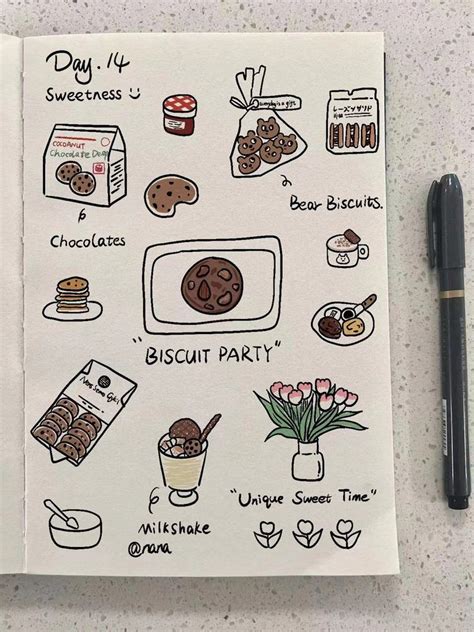 Day. 14
Sweetness
COCOANUT
Chocolate
レーズンサンド
Bear Biscuits.
Chocolates
"BISCUIT PARTY"
"Unique Sweet Time"
Milkshake
@nana